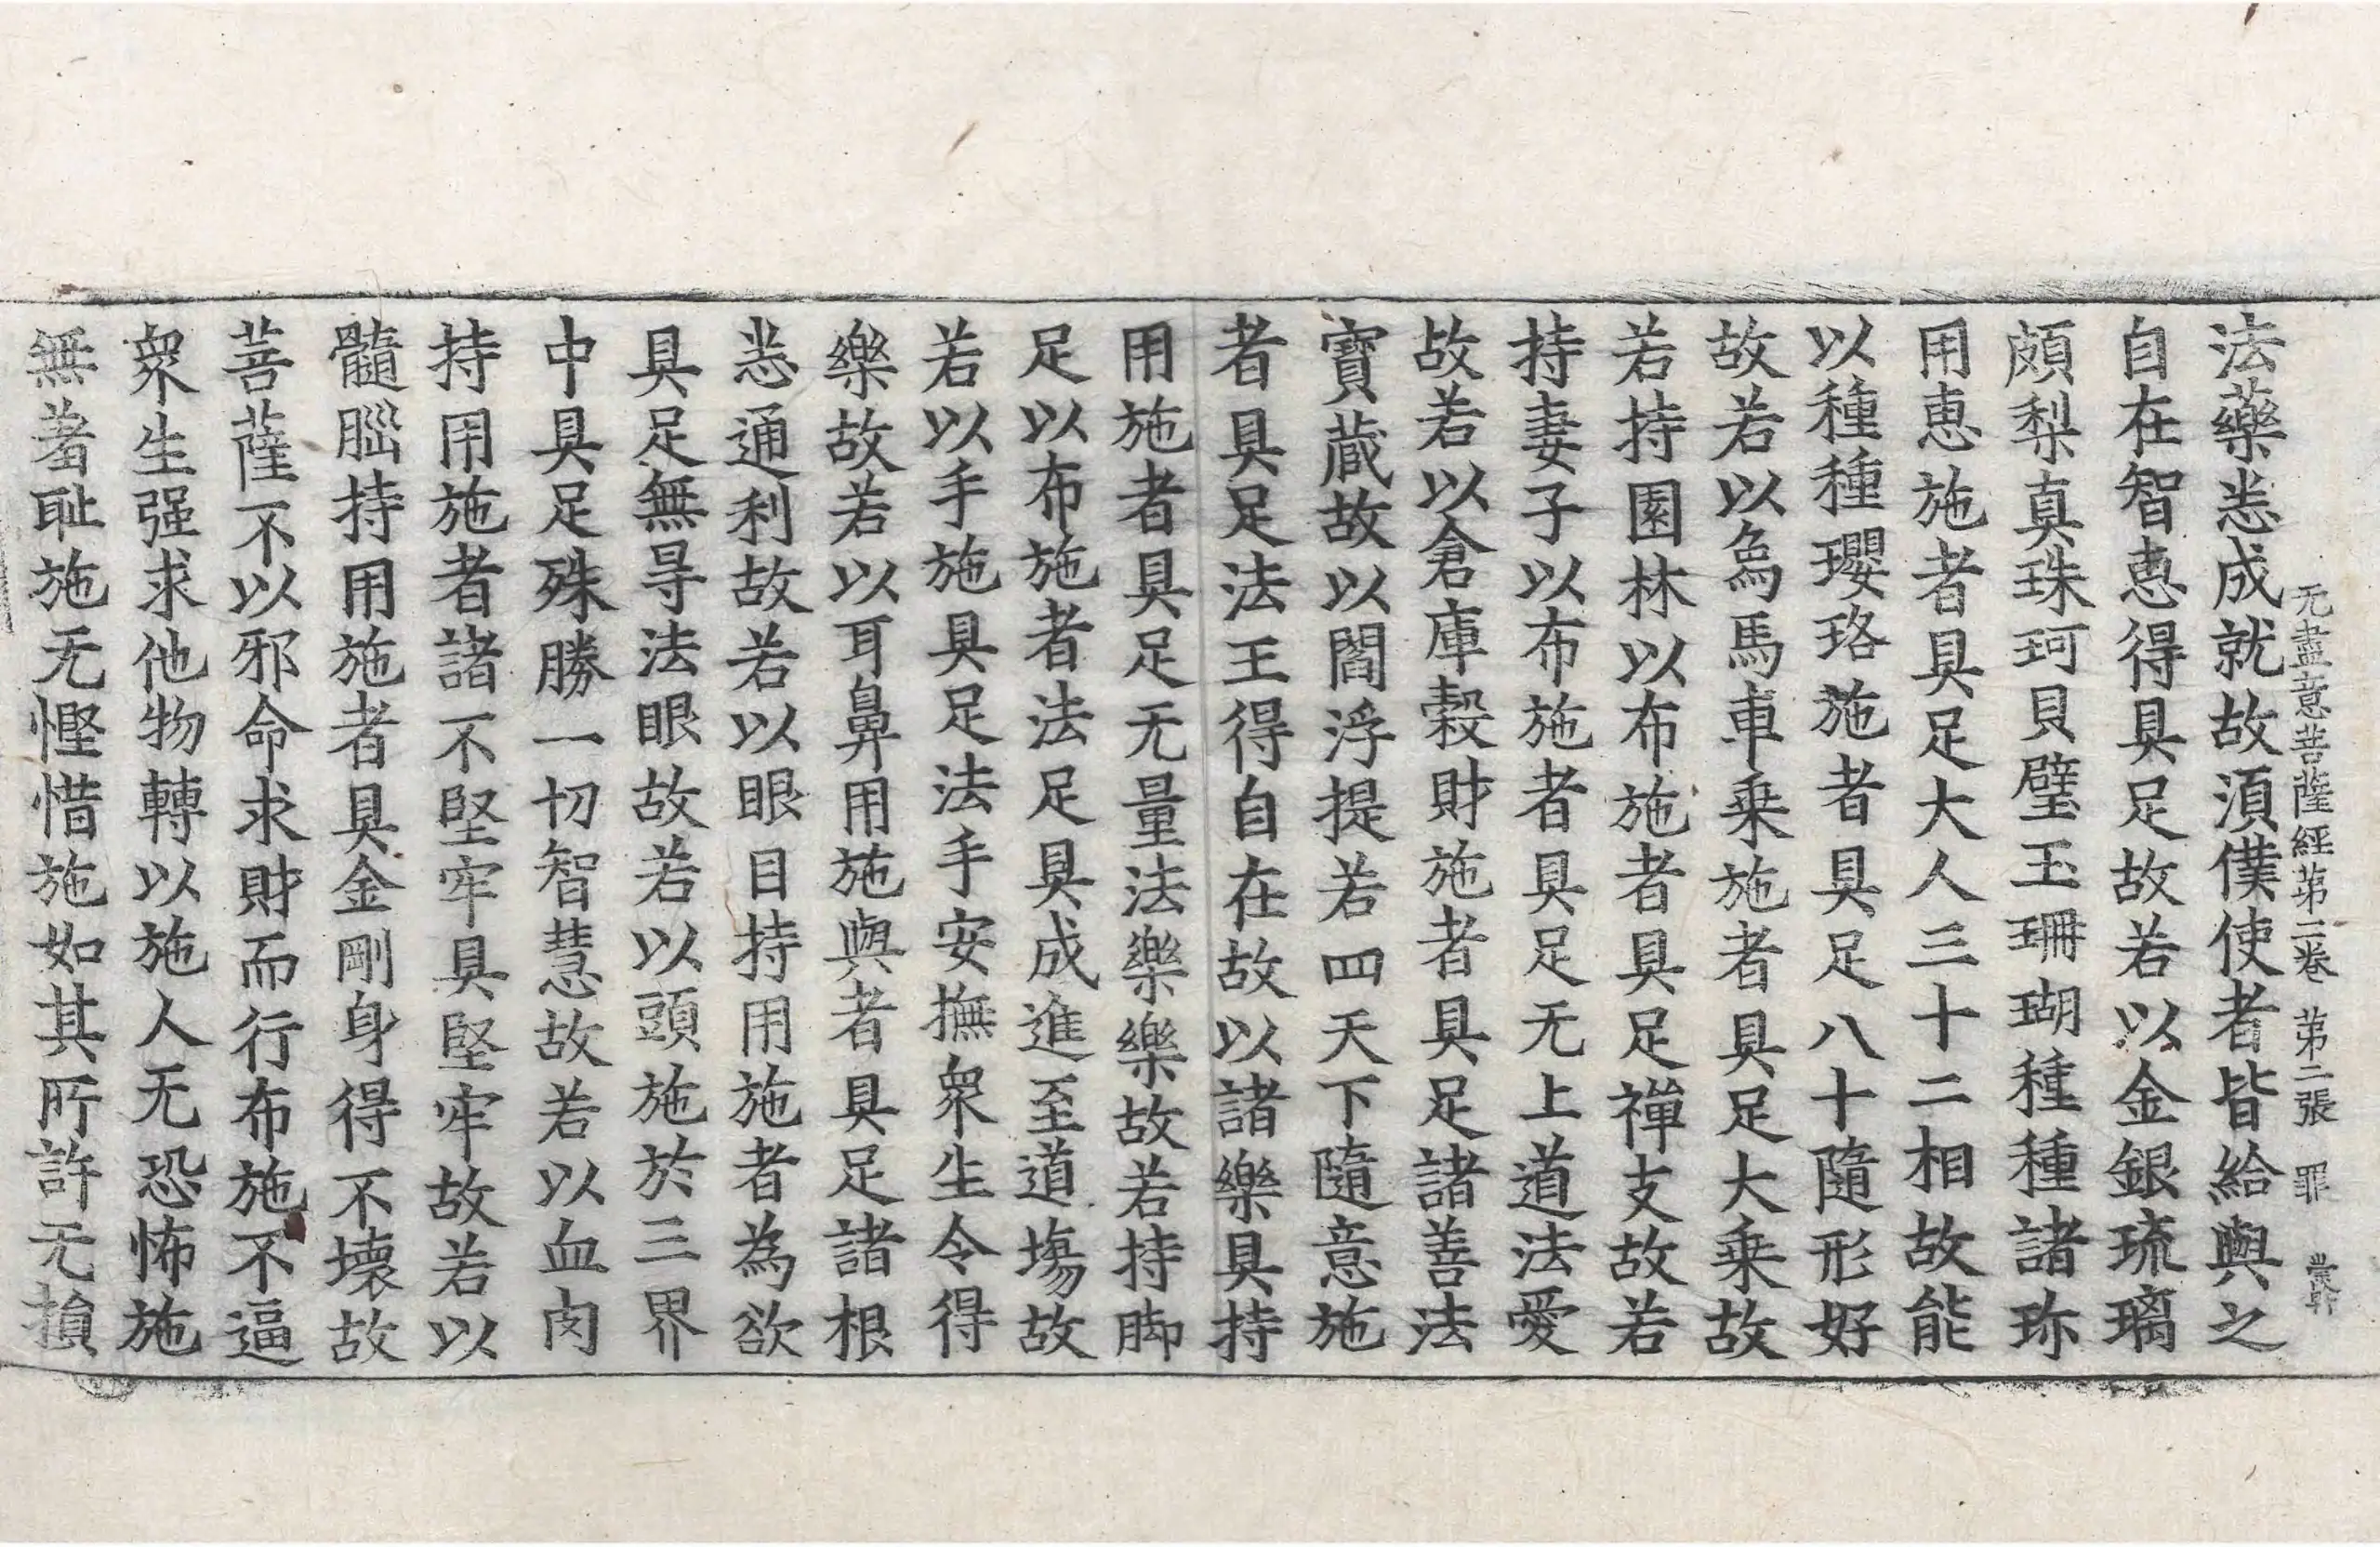 无盡意菩薩經第二卷 第二張 罪
法藥悉成就故湏僕使者皆給與之
自在智惠得具足故若以金銀琉璃
頗梨真珠珂貝璧玉珊瑚種種諸珎
用惠施者具足大人三十二相故能
以種種瓔珞施者具足八十隨形好
故若以象馬車乗施者具足大乗故
若持園林以布施者具足禪支故若
持妻子以布施者具足无上道法愛
故若以倉庫穀財施者具足諸善法
寶藏故以閻浮提若四天下隨意施
者具足法王得自在故以諸樂具持
用施者具足无量法樂樂故若持脚
足以布施者法足具成進至道塲故
若以手施具足法手安撫衆生令得
樂故若以耳鼻用施與者具足諸根
悉通利故若以眼目持用施者為欲
具足無㝵法眼故若以頭施於三界
中具足殊勝一切智慧故若以血肉
持用施者諸不堅牢具堅牢故若以
髓腦持用施者具金剛身得不壞故
菩薩不以邪命求財而行布施不逼
衆生强求他物轉以施人无恐怖施
無羞耻施无慳惜施如其所許无損